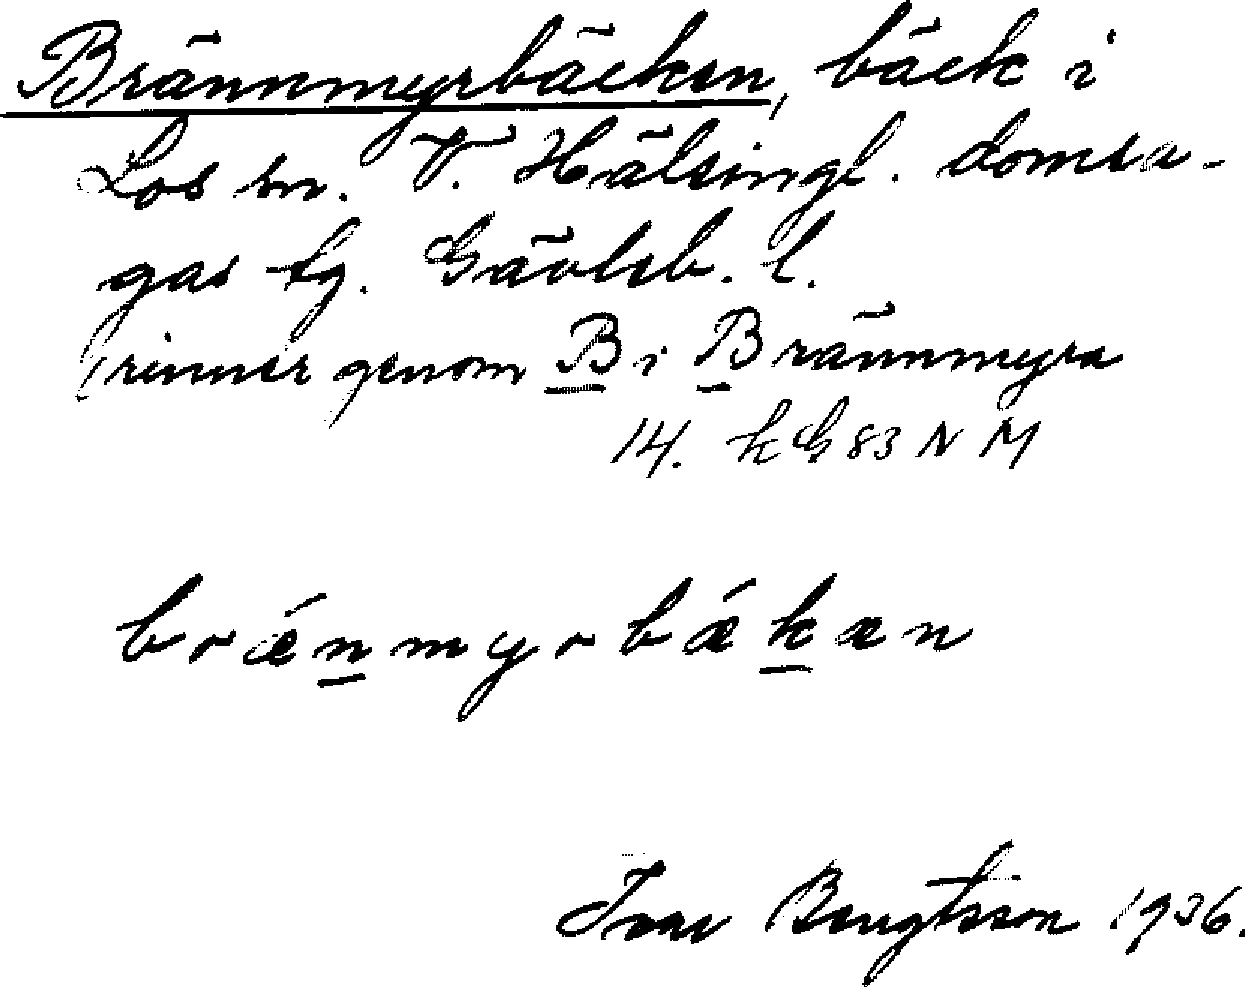 Brännmyrbäcken, bäck i
Los sn. V. Hälsingl. domsa-
gas tg. Gävleb. l.
rinner genom B i Brännmyra
14. kG 83 N M
brǽnmyrbǽkæn
Ivar Bengtsson 1936.